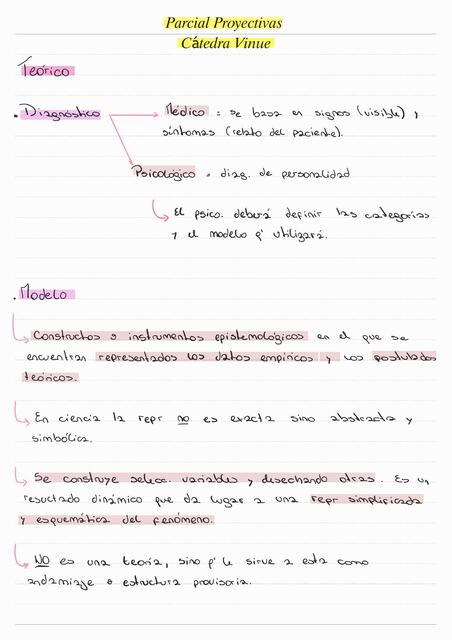 Parcial Proyectivas
Cátedra Vinue
Teórico
. Diagnóstico
Médico : se basa en signos (visible) y
síntomas (relato del paciente).
Psicológico = diag. de personalidad
El psico. deberá definir las categorías
y el modelo q' utilizará.
. Modelo
Constructos o instrumentos epistemológicos en el que se
encuentran representados los datos empíricos y los postulados
teóricos.
En ciencia la repr no es exacta sino abstracta y
simbólica.
Se construye selecc. variables y desechando otras. Es un
resultado dinámico que da lugar a una repr simplificada
y esquemática del fenómeno.
NO es una teoría, sino q' le sirve a esta como
andamiaje o estructura provisoria.